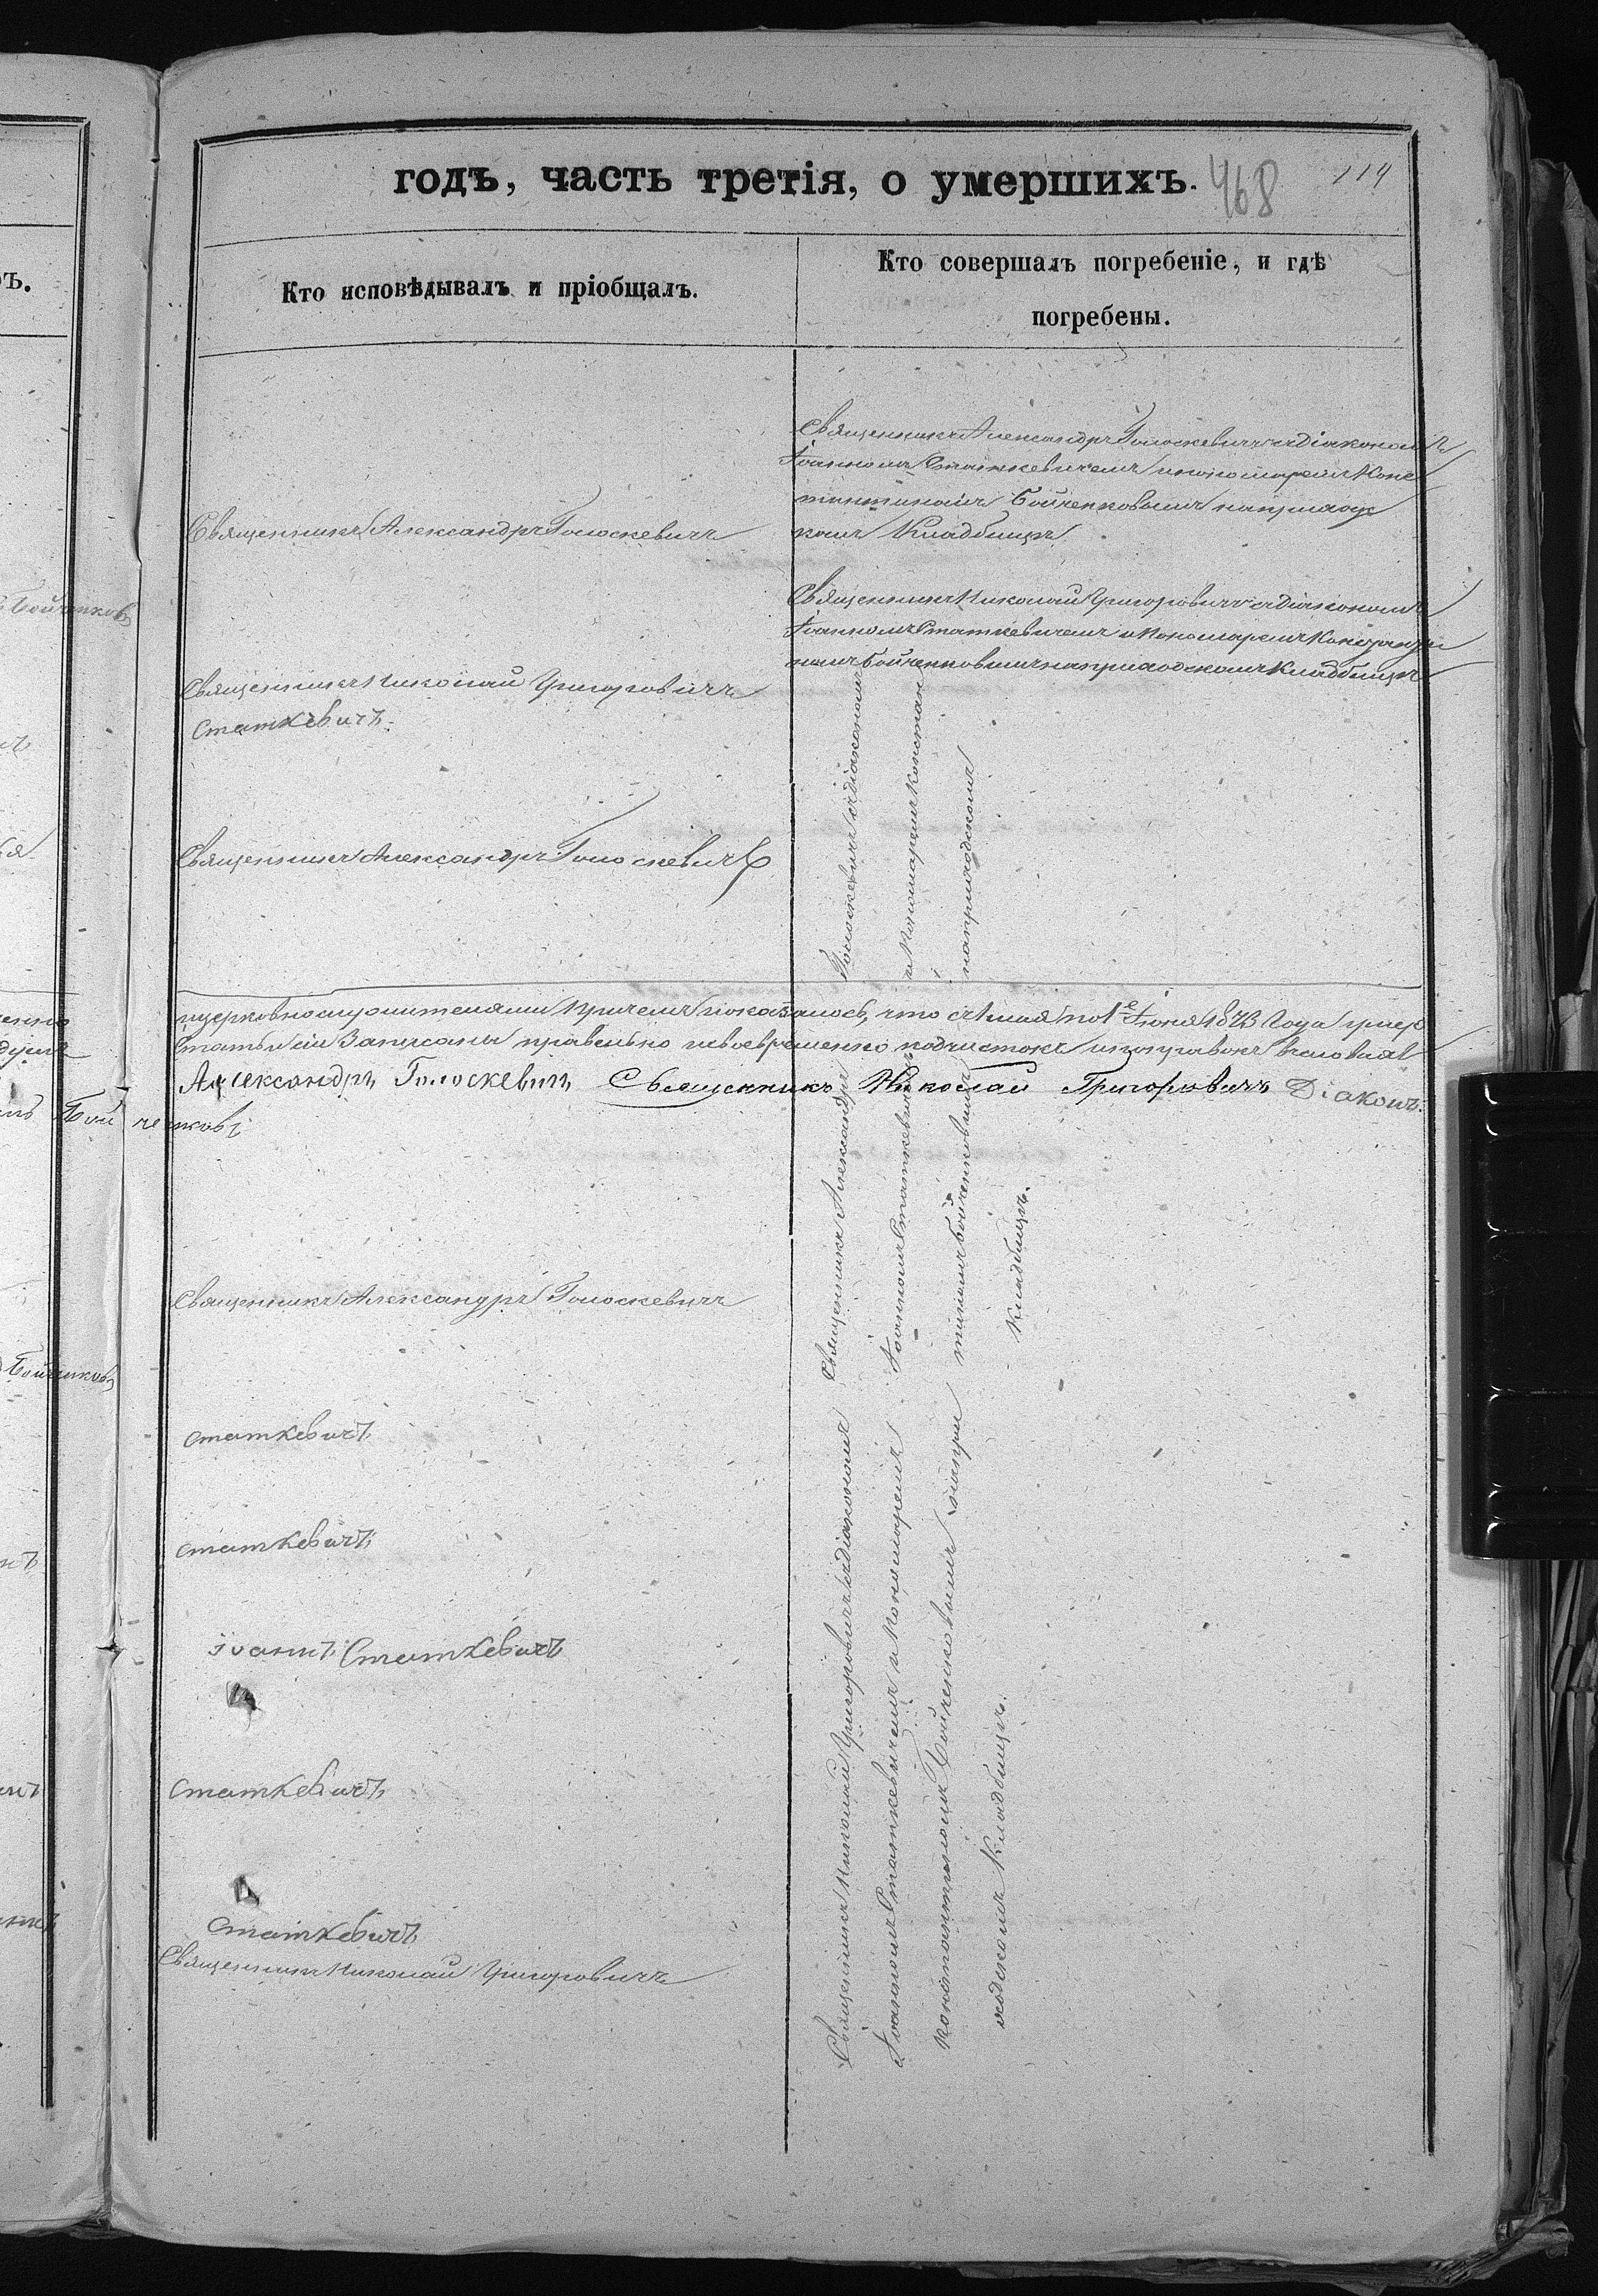 годъ, часть третія, о умершихъ.
468
114
Кто исповѣдывалъ и пріобщалъ.
Кто совершалъ погребеніе, и гдѣ
погребены.
Священникъ Александръ Голоскевичъ
Священникъ Александръ Голоскевичъ съ діакономъ
Іоанномъ Статкевичемъ и пономаремъ Конс
тантиномъ Бойченковымъ на приход
комъ Кладбищѣ
Священникъ Николай Григоровичъ
Статкевичъ.
Священникъ Николай Григоровичъ съ діакономъ
Іоанномъ Статкевичемъ и Пономаремъ Константи
номъ Бойченковымъ на приходскомъ Кладбищѣ
Священникъ Александръ Голоскевичъ
и церковнослужителями причемъ показалось, что съ 1 мая по 1е Іюня 1873 Года умер
статьи сіи Записаны правельно и своевременно подчистокъ и поправокъ
Александръ Голоскевичъ Священникъ Николай Григоровичъ Діаконъ
Бойченковъ
Священникъ Александръ Голоскевичъ съ діакономъ
Іоанномъ Статкевичемъ и Пономаремъ Констан
тиномъ Бойченковымъ на приходскомъ
Кладбищѣ.
Священникъ Александръ Голоскевичъ
Статкевичъ
Статкевичъ
Іоаннъ Статкевичъ
Статкевичъ
Статкевичъ
Священникъ Николай Григоровичъ
Священникъ Николай Григоровичъ съ діакономъ
Іоанномъ Статкевичемъ и Пономаремъ
Константиномъ Бойченковымъ на при
ходскомъ Кладбищѣ.